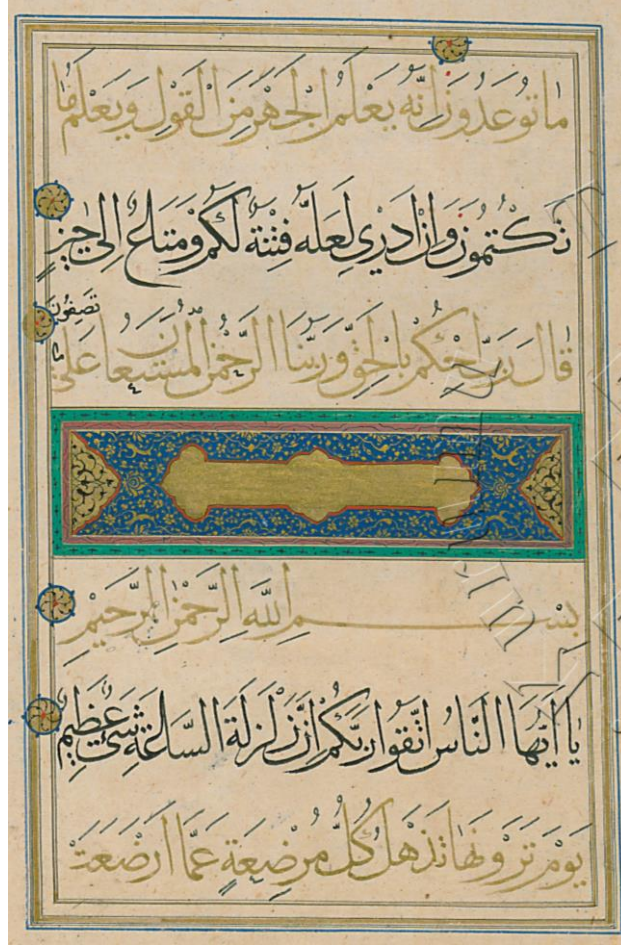 مَا تُوعَدُونَ اِنَّهُ يَعْلَمُ الْجَهْرَ مِنَ الْقَوْلِ وَيَعْلَمُ مَا
تَكْتُمُونَ وَاِنْ اَدْرِى لَعَلَّهُ فِتْنَةٌ لَكُمْ وَمَتَاعٌ اِلٰى حِينٍ
قَالَ رَبِّ احْكُمْ بِالْحَقِّ وَرَبُّنَا الرَّحْمٰنُ الْمُسْتَعَانُ عَلٰى
مَا تَصِفُونَ
بِسْمِ اللّٰهِ الرَّحْمٰنِ الرَّحِيمِ
يَا اَيُّهَا النَّاسُ اتَّقُوا رَبَّكُمْ اِنَّ زَلْزَلَةَ السَّاعَةِ شَىْءٌ عَظِيمٌ
يَوْمَ تَرَوْنَهَا تَذْهَلُ كُلُّ مُرْضِعَةٍ عَمَّا اَرْضَعَتْ